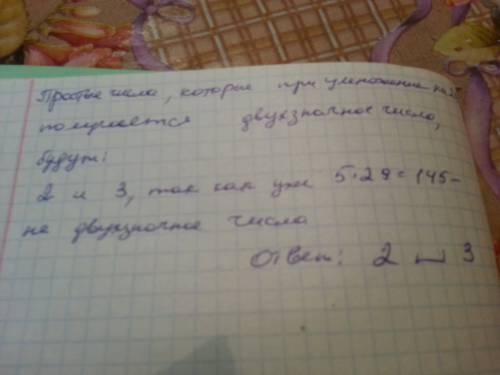 Простые числа, которые при умножение на 29
получается двухзначное число,
будут:
2 и 3, так как уже 5·29=145-
не двухзначное число
Ответ: 2 и 3